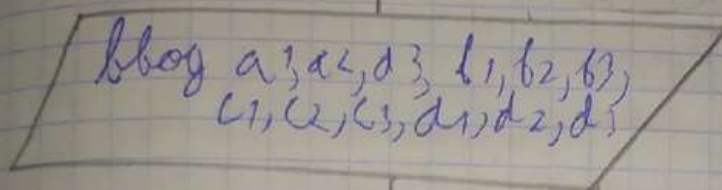 Ввод a1,a2,a3, b1,b2,b3,
c1,c2,c3,d1,d2,d3